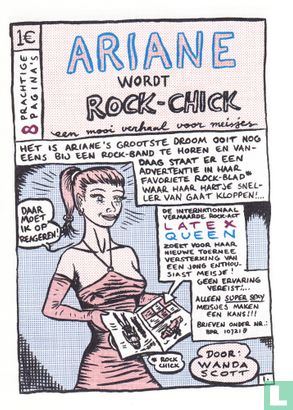 1€
8 PRACHTIGE PAGINA'S
ARIANE
WORDT
ROCK-CHICK
een mooi verhaal voor meisjes
HET IS ARIANE'S GROOTSTE DROOM OOIT NOG
EENS BIJ EEN ROCK-BAND TE HOREN EN VAN-
DAAG STAAT ER EEN
ADVERTENTIE IN HAAR
FAVORIETE ROCK-BLAD*
WAAR HAAR HARTJE SNEL-
LER VAN GAAT KLOPPEN!...
DAAR
MOET
IK OP
REAGEREN!
DE INTERNATIONAAL
BEFAAMDE ROCK-ACT
LATEX
QUEEN
ZOEKT VOOR HAAR
NIEUWE TOERNEE
VERSTERKING VAN
EEN JONG ENTHOU-
SIAST MEISJE!
GEEN ERVARING
VEREIST!...
ALLEEN SUPER SEXY
MEISJES MAKEN
EEN KANS!!!
BRIEVEN ONDER NR.:
* ROCK
CHICK
DOOR:
WANDA
SCOTT
1.